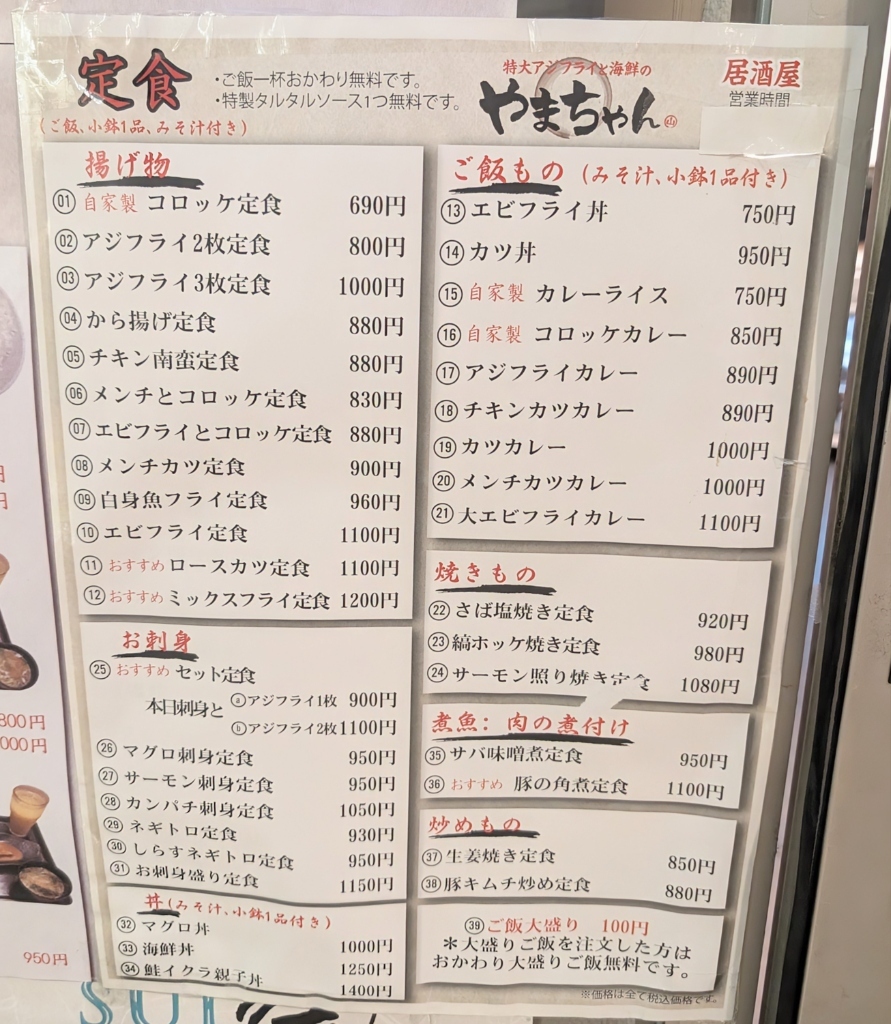 定食
・ご飯一杯おかわり無料です。
・特製タルタルソース1つ無料です。
(ご飯、小鉢1品、みそ汁付き)
特大アジフライと海鮮の
やまちゃん
居酒屋
営業時間
揚げ物
01 自家製 コロッケ定食 690円
02 アジフライ2枚定食 800円
03 アジフライ3枚定食 1000円
04 から揚げ定食 880円
05 チキン南蛮定食 880円
06 メンチとコロッケ定食 830円
07 エビフライとコロッケ定食 880円
08 メンチカツ定食 900円
09 白身魚フライ定食 960円
10 エビフライ定食 1100円
11 おすすめ ロースカツ定食 1100円
12 おすすめ ミックスフライ定食 1200円
お刺身
25 おすすめ セット定食
本日刺身と ⓐアジフライ1枚 900円
ⓑアジフライ2枚 1100円
26 マグロ刺身定食 950円
27 サーモン刺身定食 950円
28 カンパチ刺身定食 1050円
29 ネギトロ定食 930円
30 しらすネギトロ定食 950円
31 お刺身盛り定食 1150円
丼(みそ汁、小鉢1品付き)
32 マグロ丼 1000円
33 海鮮丼 1250円
34 鮭イクラ親子丼 1400円
ご飯もの (みそ汁、小鉢1品付き)
13 エビフライ丼 750円
14 カツ丼 950円
15 自家製 カレーライス 750円
16 自家製 コロッケカレー 850円
17 アジフライカレー 890円
18 チキンカツカレー 890円
19 カツカレー 1000円
20 メンチカツカレー 1000円
21 大エビフライカレー 1100円
焼きもの
22 さば塩焼き定食 920円
23 縞ホッケ焼き定食 980円
24 サーモン照り焼き定食 1080円
煮魚: 肉の煮付け
35 サバ味噌煮定食 950円
36 おすすめ 豚の角煮定食 1100円
炒めもの
37 生姜焼き定食 850円
38 豚キムチ炒め定食 880円
39 ご飯大盛り 100円
＊大盛りご飯を注文した方は
おかわり大盛りご飯無料です。
※価格は全て税込価格です。
800円
000円
950円